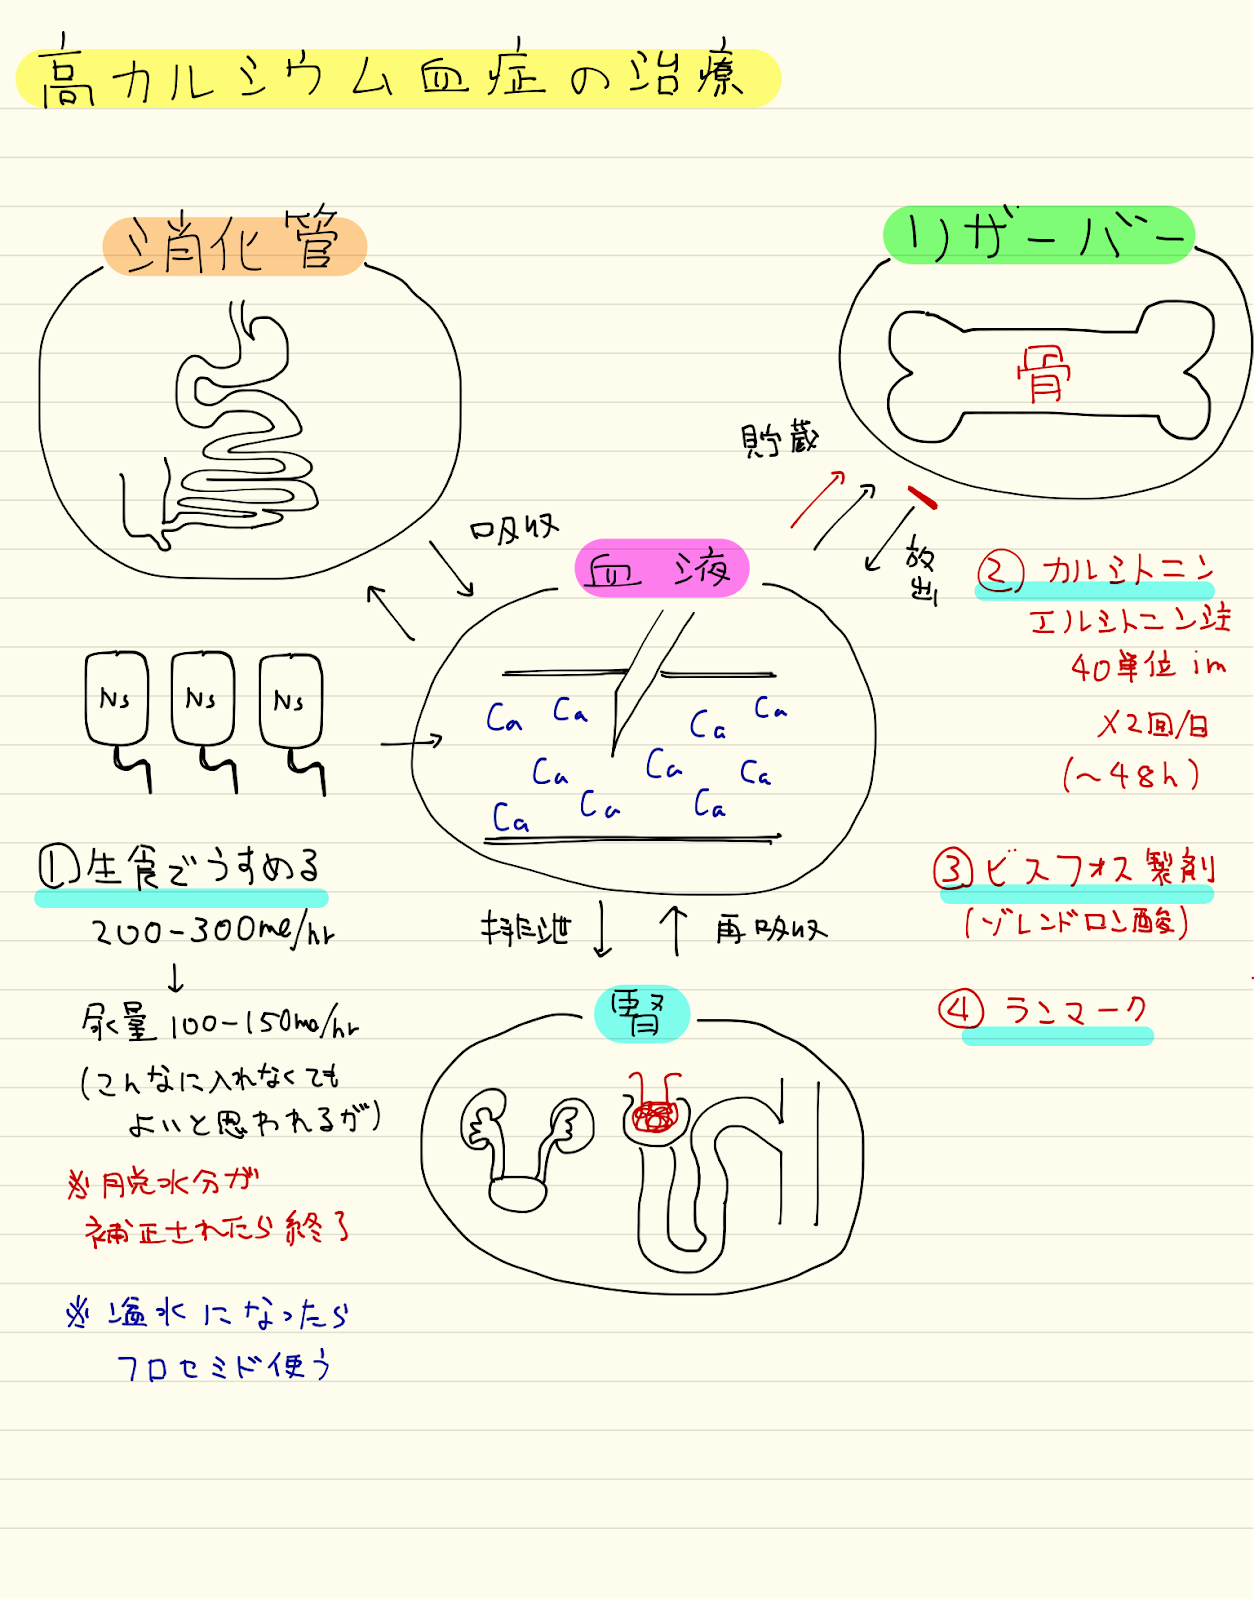 高カルシウム血症の治療
消化管
リザーバー
骨
貯蔵
吸収
血液
放出
② カルシトニン
エルシトニン注
40単位 im
×2回/日
(~48h)
Ns Ns Ns
Ca Ca Ca Ca
Ca Ca Ca
Ca Ca Ca
①生食でうすめる
200-300ml/hr
↓
尿量 100-150ml/hr
(こんなに入れなくても
よいと思われるが)
※脱水分が
補正されたら終了
※溢水になったら
フロセミド使う
③ビスフォス製剤
(ゾレンドロン酸)
④ランマーク
排泄
再吸収
腎